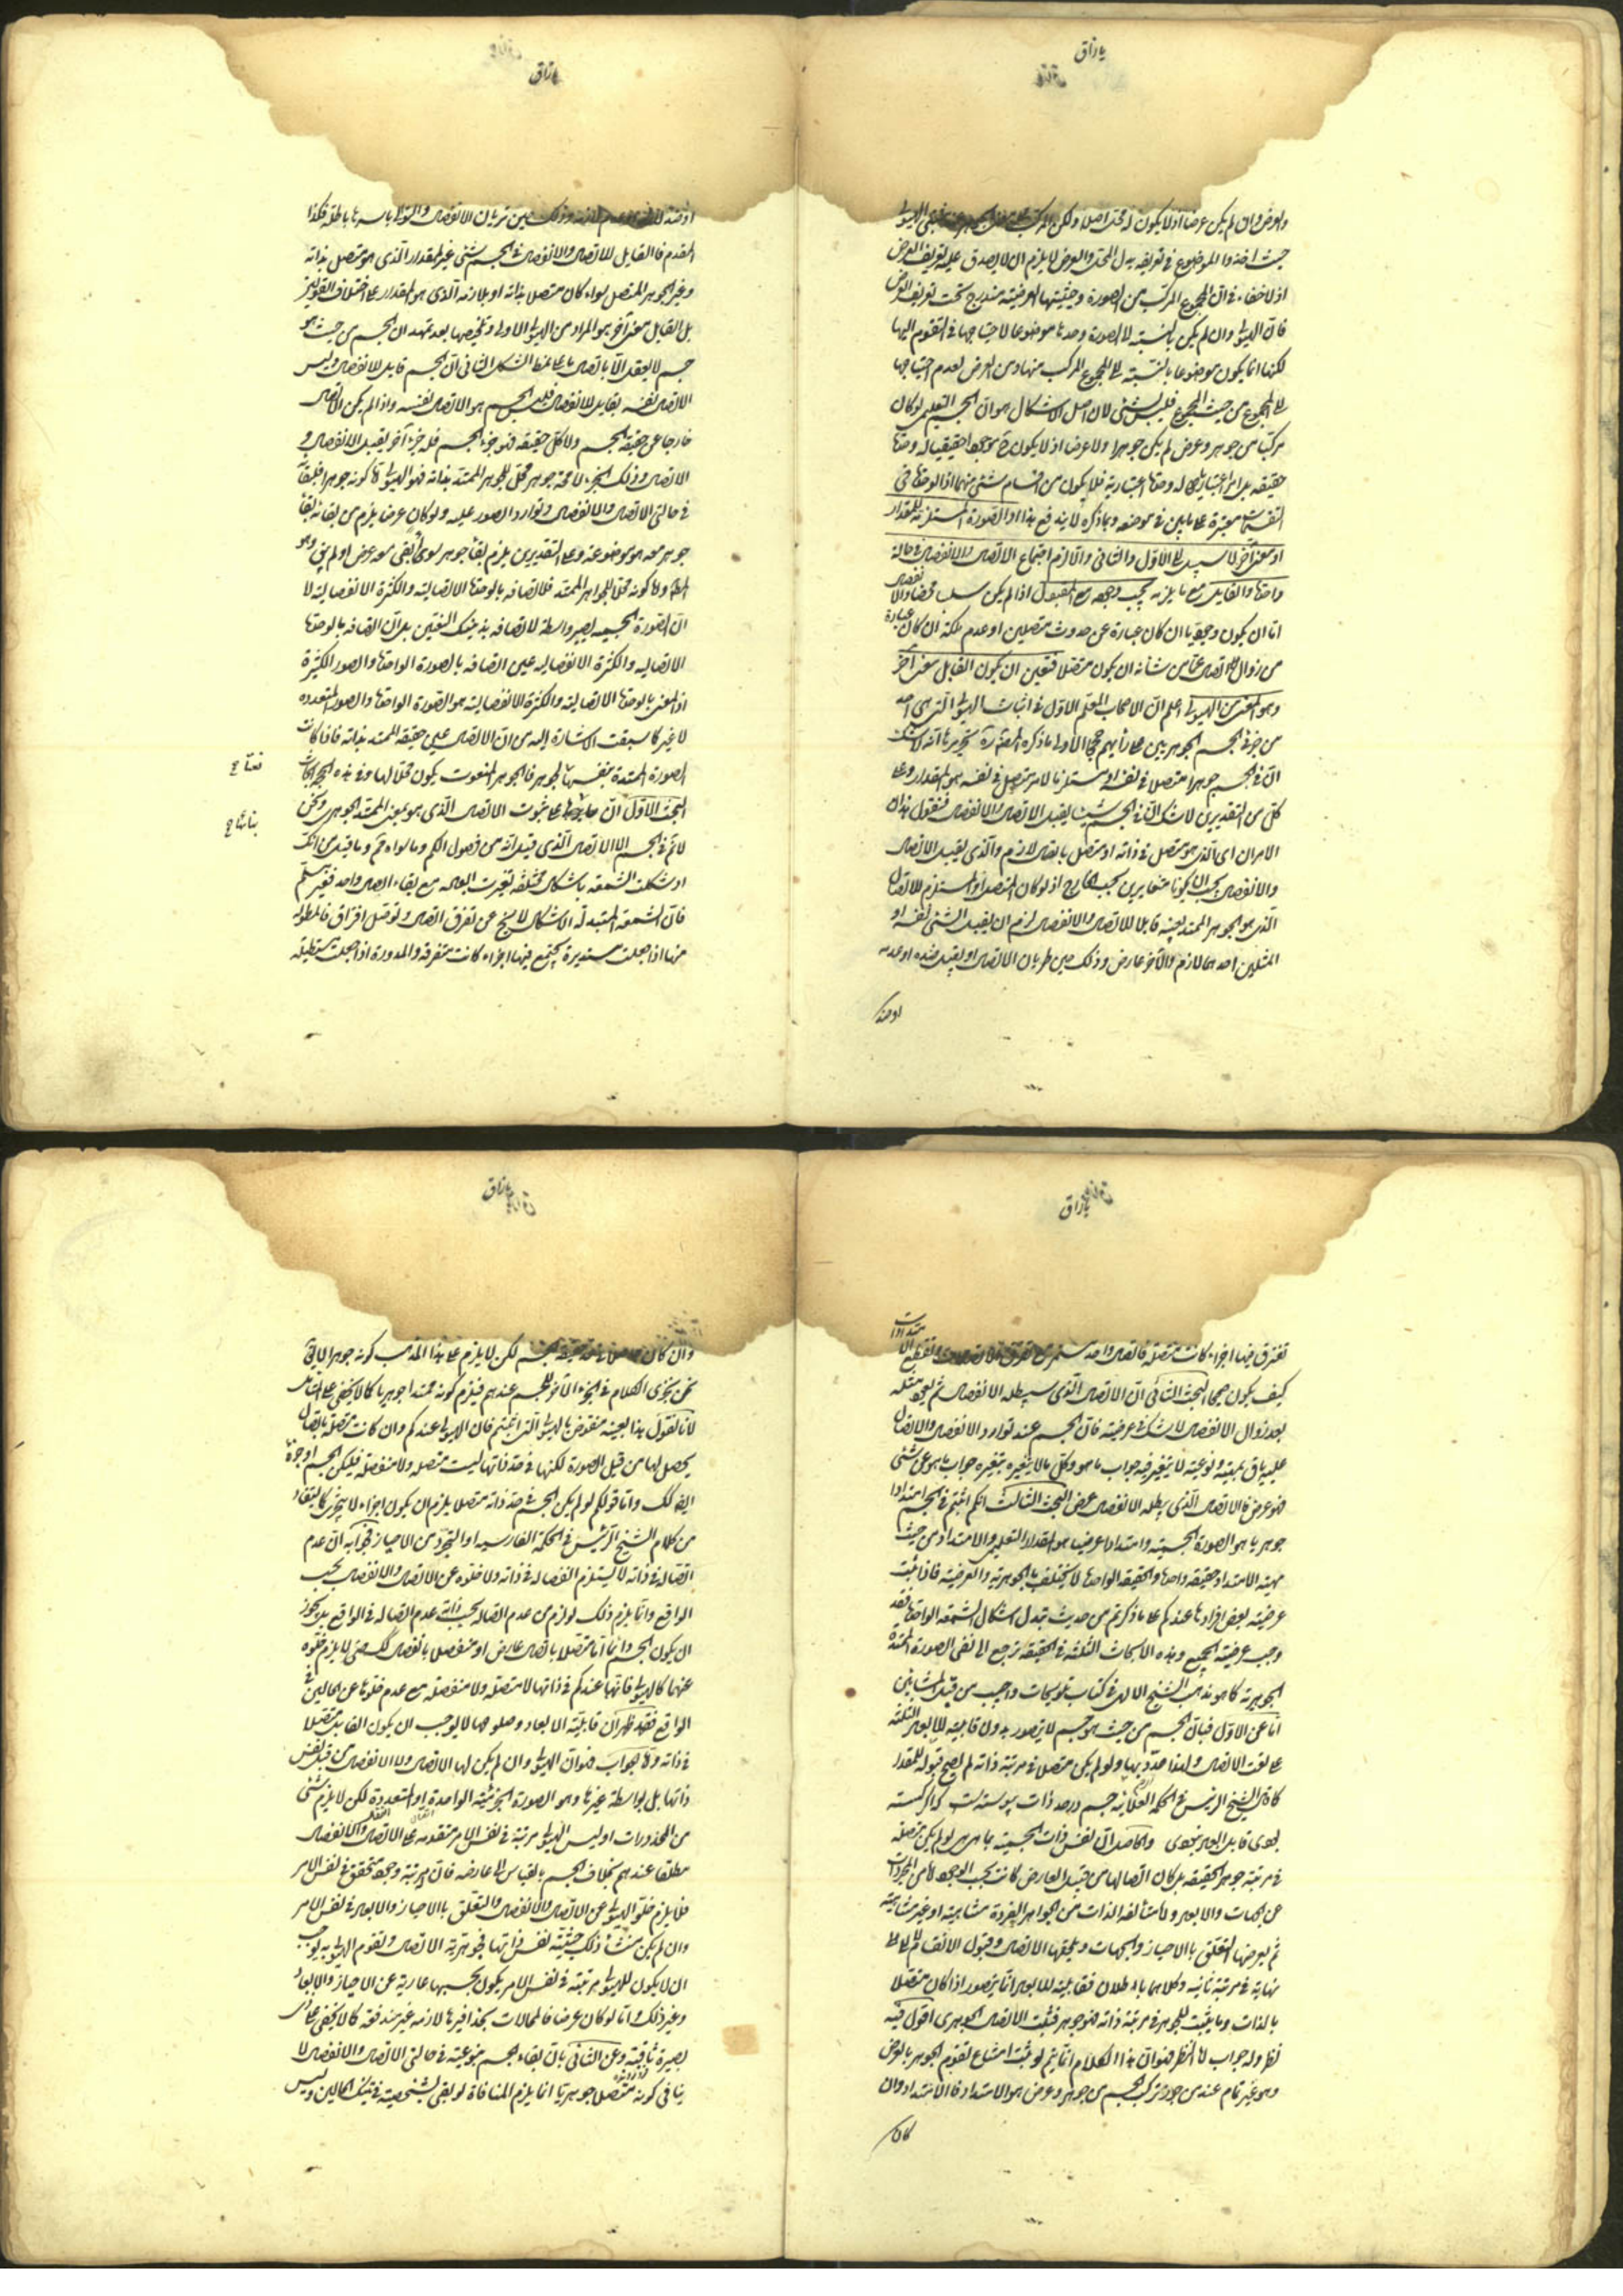 يا رزاق
والعرض وان لم يكن عرضا اذ لا يكون له محل اصلا ولكن المركب
حيث اخذوا الموضوع في تعريفه بدل المحل والعرض لا يلزم ان لا يصدق عليه تعريف العرض
اذ لا خفاء في ان المجموع المركب من الصورة وحيثيتها العرضية مندرج تحت تعريف العرض
فان الهيولى وان لم يكن بالنسبة الى الصورة وحدها موضوعا لاحتياجها في التقوم اليها
لكنها انما يكون موضوعا بالنسبة الى المجموع المركب منها ومن العرض لعدم احتياجها
الى المجموع من حيث المجموع فليس بشئ لان اصل الاشكال هو ان الجسم التعليمي لو كان
مركبا من جوهر وعرض لم يكن جوهرا ولا عرضا اذ لا يكون موجودا حقيقيا له وحدة
حقيقية بل امرا اعتباريا له وحدة اعتبارية فلا يكون من اقسام شئ منهما اذ الوحدة في
التقسيمات معتبرة على ما بين في موضعه وبما ذكره لا يندفع هذا او الصورة المستلزمة للمقدار
او معنى آخر لا سبيل الى الاول والثاني والا لزم اجتماع الاتصال والانفصال في حالة
واحدة والقابل مع ما يلزمه يجب وجوده مع المقبول اذا لم يكن سلبا محضا والانفصال
اما ان يكون وجوديا ان كان عبارة عن حدوث متصلين او عدم ملكة ان كان عبارة
من زوال الاتصال عما من شأنه ان يكون متصلا فتعين ان يكون القابل معنى آخر
وهو المعنى من الهيولى اعلم ان لاصحاب المعلم الاول في اثبات الهيولى التي هي احد
من جزئي الجسم الجوهريين على رأيهم حججا الاولى ما ذكره المص تحريرها انه لا شك
ان في الجسم جوهرا متصلا في نفسه او مستلزما لامر متصل في نفسه هو المقدار وعلى
كل من التقديرين لا شك ان في الجسم شيئا يقبل الاتصال والانفصال فنقول هذان
الامران اي الذي هو متصل في ذاته او متصل باتصال لازم والذي يقبل الاتصال
والانفصال يجب ان يكونا متغايرين بحسب الخارج اذ لو كان المتصل او المستلزم للاتصال
الذي هو الجوهر الممتد بعينه قابلا للاتصال والانفصال لزم ان يقبل الشئ نفسه او
المثلين احدهما لازم والآخر عارض وذلك حين طريان الاتصال او يقبل ضده او عدمه
او ضد
يا رزاق
او ضد وذلك حين طريان الانفصال والتوالي باسرها باطلة فكذا
المقدم فالقابل للاتصال والانفصال في الجسم شئ غير المقدار الذي هو متصل بذاته
وغير الجوهر المتصل سواء كان متصلا بذاته او بلازمه الذي هو المقدار على اختلاف القولين
بل القابل معنى آخر هو المراد من الهيولى الاولى وتلخيصها بعد تمهيد ان الجسم من حيث هو
جسم لا يعقل الا باتصال ما على نمط الشكل الثاني ان الجسم قابل للانفصال وليس
الاتصال نفسه بقابل للانفصال فليس الجسم هو الاتصال نفسه واذا لم يكن الاتصال
خارجا عن حقيقة الجسم ولا كل حقيقته فهو جزء الجسم فله جزء آخر يقبل الانفصال و
الاتصال وذلك الجزء لا محة جوهر محل للجوهر الممتد بذاته فهو الهيولى اما كونه جوهرا فلبقائه
في حالتي الاتصال والانفصال وتوارد الصور عليه ولو كان عرضا يلزم من بقائه بقاء
جوهر معه هو موضوعه وعلى التقديرين يلزم بقاء جوهر سواء بقي معه عرض او لم يبق وهو
المط واما كونه محلا للجوهر الممتد فلاتصافه بالوحدة الاتصالية والكثرة الانفصالية لا
ان الصورة الجسمية يصير واسطة لاتصافه بذينك النعتين بل ان اتصافه بالوحدة
الاتصاليه والكثرة الانفصاليه عين اتصافه بالصورة الواحدة والصور الكثيرة
اذ المعنى بالوحدة الاتصالية والكثرة الانفصالية هو الصورة الواحدة والصور المتعدده
لا غير كما سبقت الاشارة اليه من ان الاتصال عين حقيقة الممتد بذاته فاذا كانت
الصورة الممتدة بنفسها الجوهر فالجوهر المنعوت يكون محلا لها وفي هذه الحجة ابحاث
البحث الاول ان مدارها على ثبوت الاتصال الذي هو بمعنى الممتد الجوهري ونحن
لا نم في الجسم الا الاتصال الذي قيل انه من فصول الكم وما سواه ثم وما قيل من انك
او شكلت الشمعه باشكال مختلفة تغيرت ابعاده مع بقاء اتصال واحد فغير مسلم
فان الشمعة المتبدلة الاشكال لا يخ عن تفرق اتصال وتوصل افتراق فالمطولة
منها اذا جعلت مستديرة يجتمع فيها اجزاء كانت متفرقة والمدورة اذا جعلت مستطيلة
يا رزاق
تفترق فيها اجزاء كانت متصلة فاتصال واحد مستمر مع تفرق الاتصال
كيف يكون صحيحا البحث الثاني ان الاتصال الذي يبطله الانفصال ثم يعود مثله
بعد زوال الانفصال لا شك في عرضيته فان الجسم عند توارد الانفصال والاتصال
عليه باق بمهيته ونوعيته لا يتغير فيه جواب ما هو وكل ما لا يتغير بتغيره جواب ما هو عن شئ
فهو عرض فالاتصال الذي يبطله الانفصال عرض البحث الثالث انكم اثبتم في الجسم امتدادا
جوهريا هو الصورة الجسمية وامتدادا عرضيا هو المقدار التعليمي والامتداد من حيث
مهية الامتداد حقيقة واحدة والحقيقة الواحدة لا يختلف بالجوهرية والعرضية فاذا ثبت
عرضية بعض افرادها عندكم على ما ذكرتم من حديث تبدل اشكال الشمعة الواحدة فقد
وجب عرضية الجميع وهذه الابحاث الثلثة في الحقيقة ترجع الى نفي الصورة الممتدة
الجوهرية كما هو مذهب الشيخ الالهي في كتاب تلويحات واجيب من قبل المشائين
اما عن الاول فبان الجسم من حيث هو جسم لا يتصور بدون قابلية للابعاد الثلثة
على نعت الاتصال ولهذا حدد بها ولو لم يكن متصل في مرتبة ذاته لم يصح قبوله للمقدار
كما قال الشيخ الرئيس في الحكمة العلائيه جسم در حد ذات پيوسته است كه اگر گسسته
بودى قابل ابعاد نبودى والحاصل ان نفس ذات الجسمية بما هي هي لو لم يكن متصلة
في مرتبة جوهر الحقيقة بل كان اتصالها من قبل العارض كانت بحسب الوجود اما من المجردات
عن الجهات والابعاد واما متألفة الذات من الجواهر الفردة متناهية او غير متناهية
ثم يعرضها التعلق بالاحياز والجهات ويلحقها الاتصال وقبول الانقسام لا الى
نهاية في مرتبة ثانية وكلاهما باطلان فقابلية للابعاد انما يتصور اذا كان متصلا
بالذات وما يثبت للجوهر في مرتبة ذاته فهو جوهر فثبت الاتصال الجوهري اقول فيه
نظر وله جواب اما النظر فهو ان هذا الكلام انما يتم لو ثبت امتناع تقوم الجوهر بالعرض
وهو غير تمام عند من جوز تركب الجسم من جوهر وعرض هو الامتداد فالامتداد وان
كان
يا رزاق
وان كان لكن لا يلزم على هذا المذهب كونه جوهرا لا يقال
نحن نجري الكلام في الجزء الآخر للجسم عندهم فيلزم كونه ممتدا جوهريا كما لا يخفى على المتأمل
لانا نقول هذا بعينه منقوض بالهيولى التي اثبتم فان الهيولى عندكم وان كانت متصلة باتصال
يحصل لها من قبل الصورة لكنها في حد ذاتها ليست متصله ولا منفصلة فليكن الجسم او جزؤه
ايضا كك واما قولكم لو لم يكن الجسم في حد ذاته متصلا يلزم ان يكون اجزاء لا يتجزى كما يستفاد
من كلام الشيخ الرئيس في الحكمة الفارسيه او التجرد من الاحياز فجوابه ان عدم
اتصاله في ذاته لا يستلزم انفصاله في ذاته ولا خلوه عن الاتصال والانفصال بحسب
الواقع وانما يلزم ذلك لو لزم من عدم اتصاله بحسب ذاته عدم اتصاله في الواقع بل يجوز
ان يكون الجسم دائما اما متصلا باتصال عارض او منفصلا بانفصال كك حتى لا يلزم خلوه
عنهما كالهيولى فانها عندكم في ذاتها لا متصلة ولا منفصله مع عدم خلوها عن الحالين في
الواقع فقد ظهر ان قابلية الابعاد وحلولها لا يوجب ان يكون القابل متصلا
في ذاته واما الجواب فهو ان الهيولى وان لم يكن لها الاتصال ولا الانفصال من قبل نفس
ذاتها بل بواسطة غيرها وهو الصورة الجرمية الواحدة او المتعددة لكن لا يلزم شئ
من المحذورات اذ ليس للهيولى مرتبة في نفس الامر متقدمه على الاتصال والانفصال
مطلقا عندهم بخلاف الجسم بالقياس الى عارضه فان له مرتبة وجود متحقق في نفس الامر
فلا يلزم خلو الهيولى عن الاتصال والانفصال والتعلق بالاحياز والابعاد في نفس الامر
وان لم يكن منشأ ذلك حيثية نفس ذاتها فجوهرية الاتصال وتقوم الهيولى به يوجب
ان لا يكون للهيولى مرتبة في نفس الامر يكون بحسبها عارية عن الاحياز والابعاد
وغير ذلك واما لو كان عرضا فالمحالات بحذافيرها لازمه غير مندفعه كما لا يخفى على ذي
بصيرة ثاقبة وعن الثاني بان بقاء الجسم بنوعيته في حالتي الاتصال والانفصال لا
ينافي كونه متصلا جوهريا انما يلزم المنافاة لو بقي بشخصيته في تينك الحالين وليس